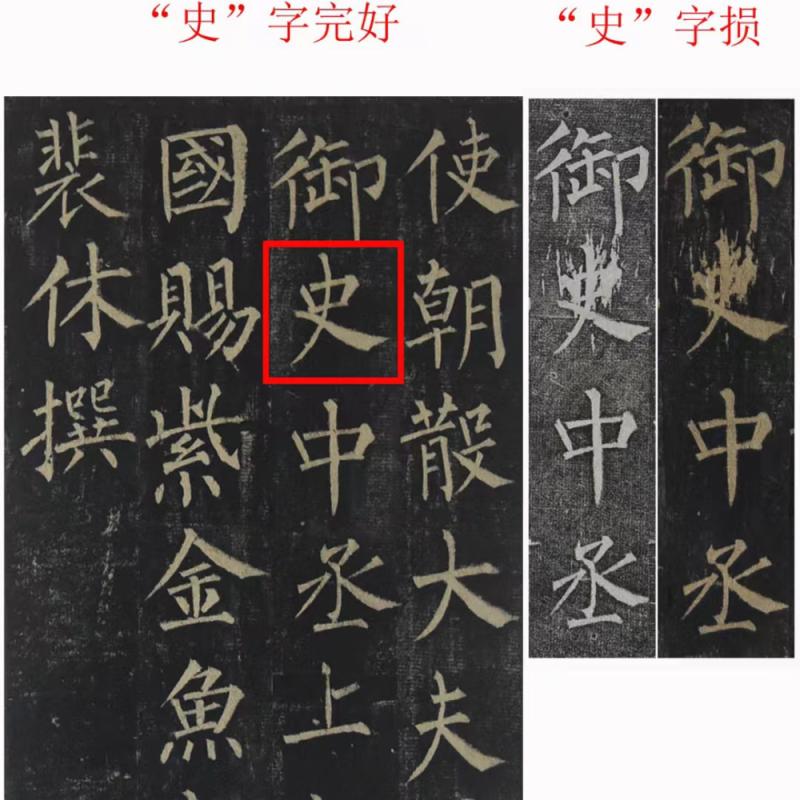 “史”字完好
“史”字损
使朝散大夫
御史中丞上
國賜紫金魚
裴休撰
御史中丞
御史中丞